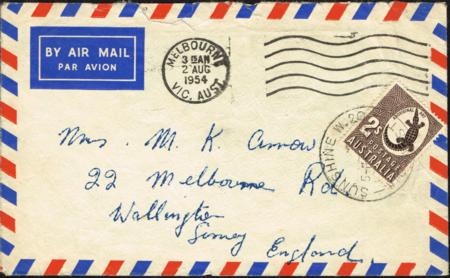 BY AIR MAIL
PAR AVION
MELBOURNE
3 30AM
2 AUG
1954
VIC. AUST.
SUNSHINE W.20
2s
POSTAGE
AUSTRALIA
Mrs. M. K. Arrow
22 Melbourne Rd
Wallington
Surrey England